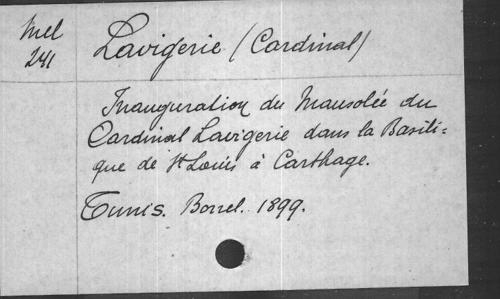 Mel
241
Lavigerie (Cardinal)
Inauguration du Mausolée du
Cardinal Lavigerie dans la Basili=
que de St Louis à Carthage.
Tunis. Borrel. 1899.